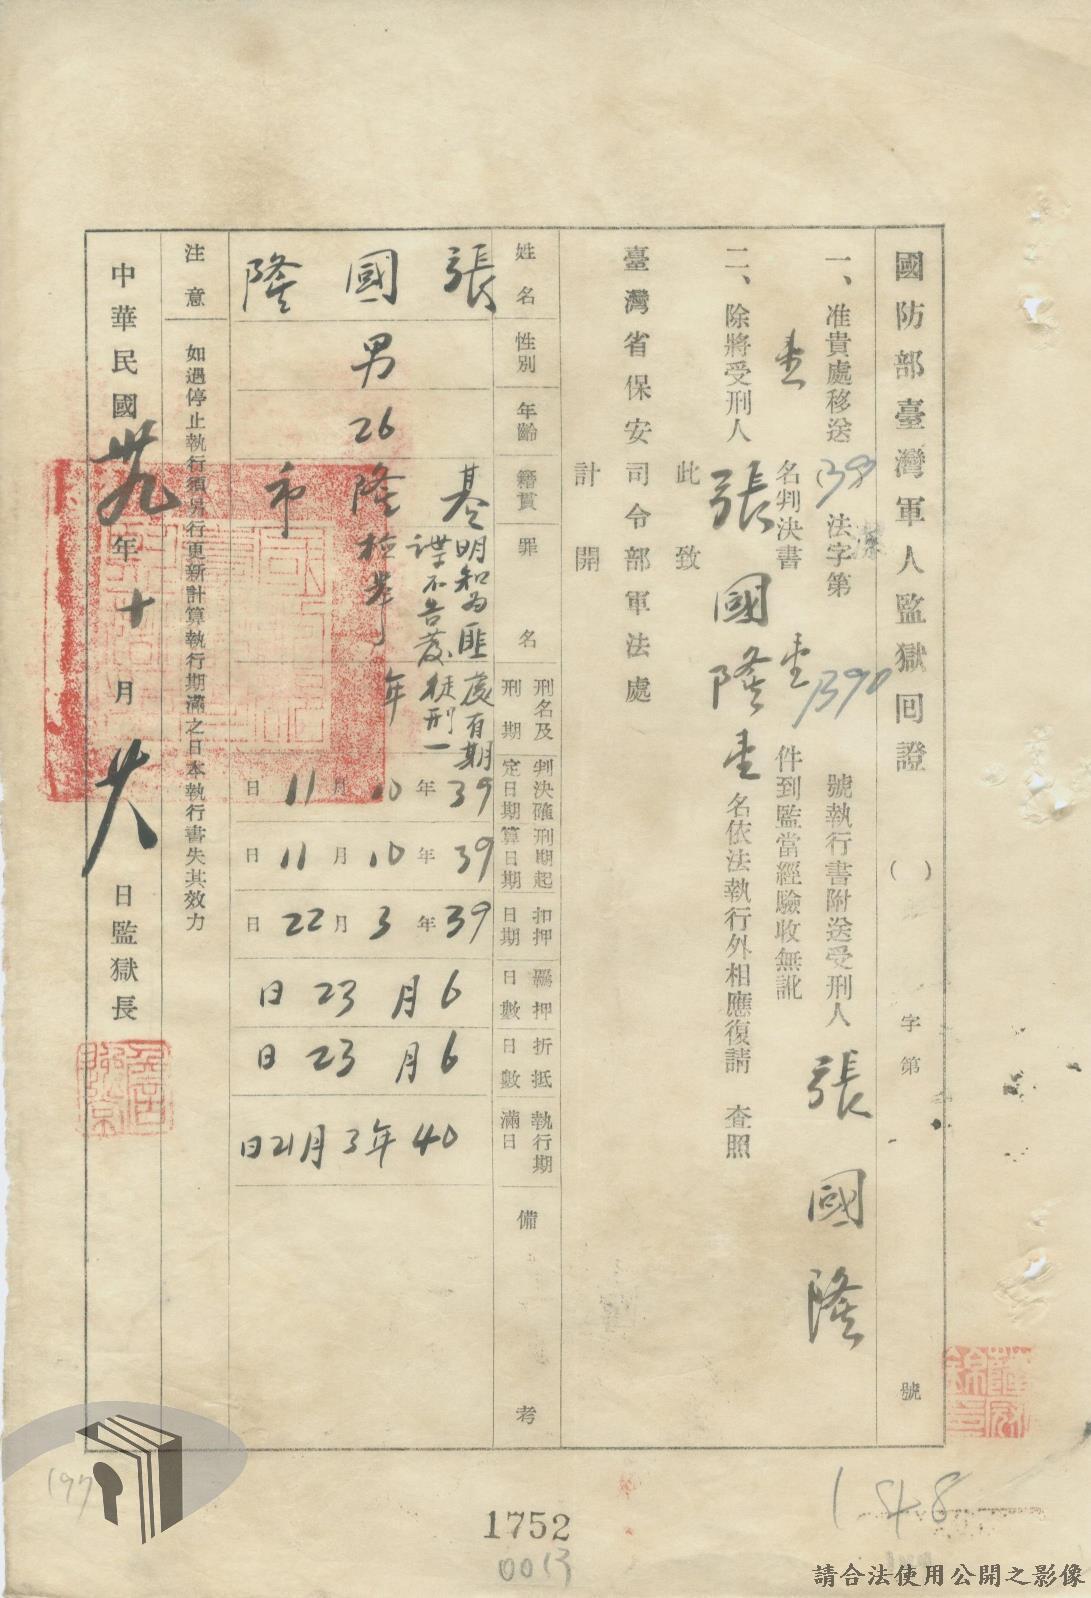 國防部臺灣軍人監獄回證 ( ) 字第 號
一、准貴處移送 (39) 法字第 1390 號執行書附送受刑人 張國隆
壹 名判決書 壹 件到監當經驗收無訛
二、除將受刑人 張國隆 壹 名依法執行外相應復請 查照
此致
臺灣省保安司令部軍法處
計開
姓名 性別 年齡 籍貫 罪名 刑名及刑期 判決確定日期 刑期起算日期 扣押日期 羈押日數 折抵日數 執行期滿日 備考
張國隆
男
26
基隆市
明知為匪諜不告發檢舉
處有期徒刑一年
39年10月11日
39年10月11日
39年3月22日
6月23日
6月23日
40年3月21日
注意 如遇停止執行須另行更新計算執行期滿之日本執行書失其效力
中華民國卅九年十月廿八日監獄長
1752
0013
148
197
請合法使用公開之影像